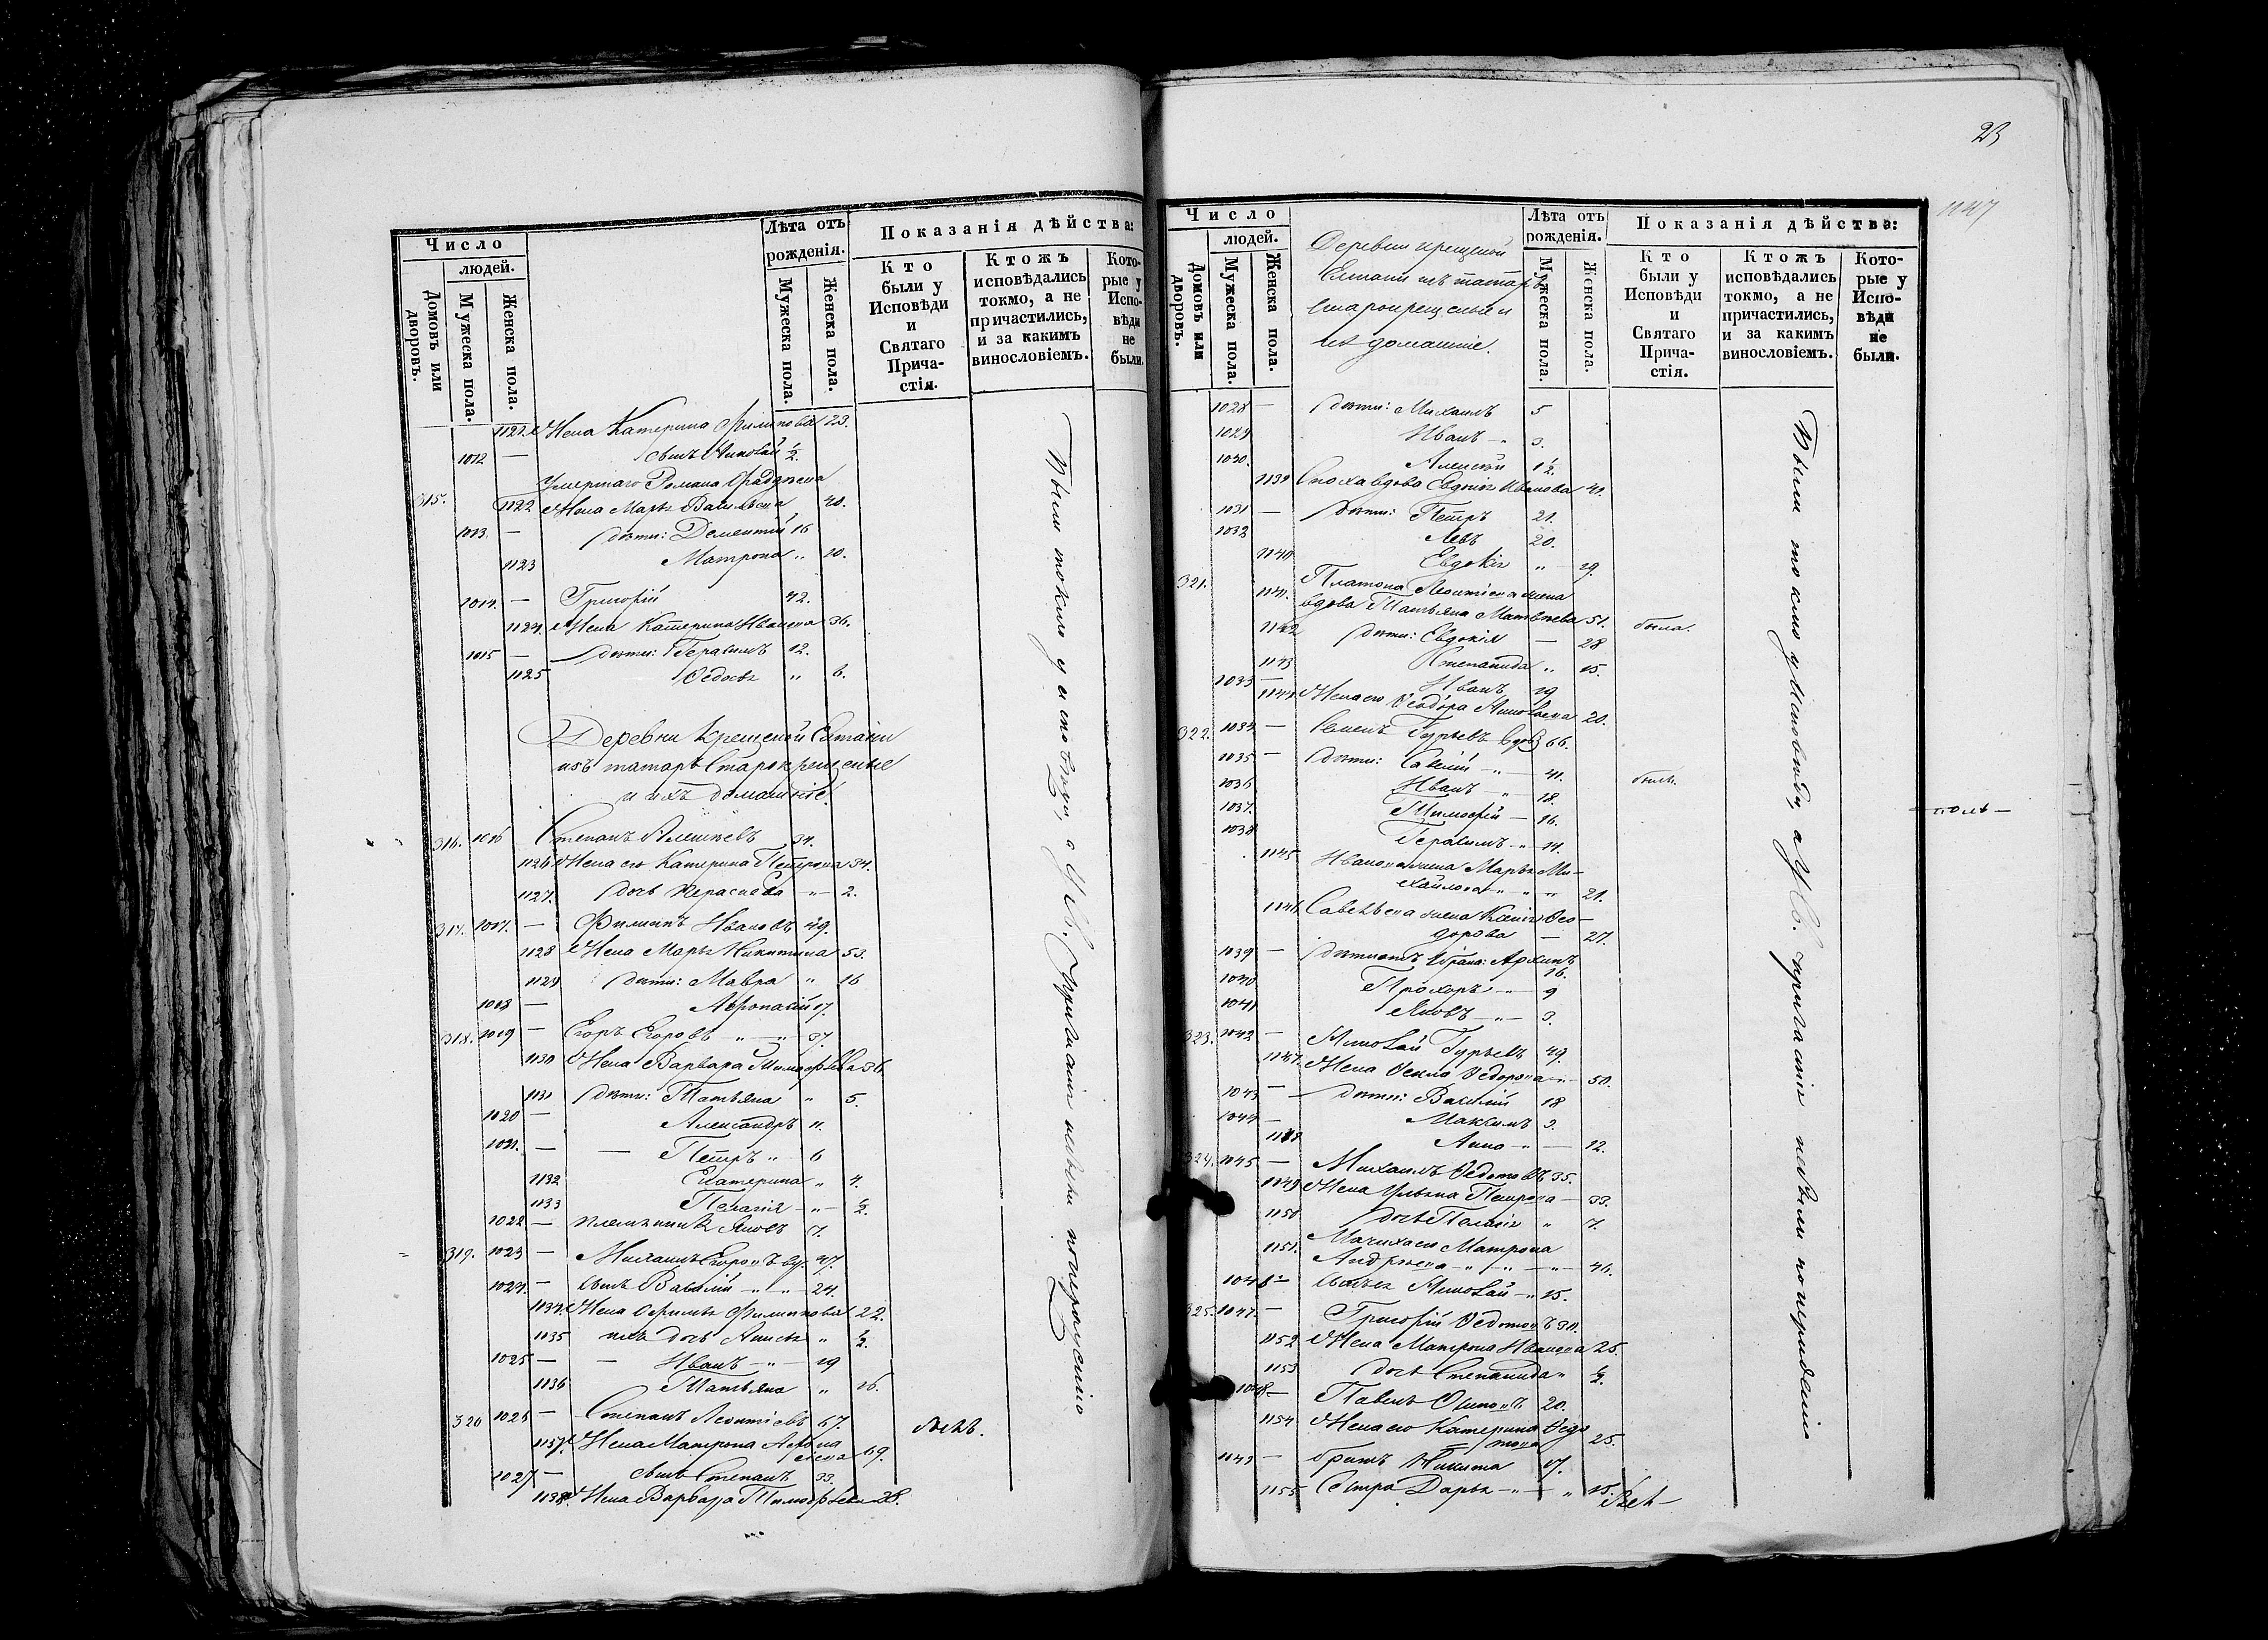 Число
людей.
Домовъ или дворовъ.
Мужеска пола.
Женска пола.
Лѣта отъ рожденія.
Мужеска пола.
Женска пола.
Показанія дѣйства:
Кто были у Исповѣди и Святаго Прича-стія.
Ктожъ исповѣдались токмо, а не причастились, и за какимъ винословіемъ.
Кото-рые у Испо-вѣди не были.
1121. Жена Катерина Филипова 23.
1012 — сынъ Николай ½
Умершаго Романа
315. 1122 Жена Марья Васильева 40.
1013. — дѣти: Дементий 16
1123 Матрона „ 10.
1014. — Григорій 42.
1124. Жена Катерина Иванова 36.
1015 — дѣти: Герасимъ 12.
1125 Ѳедосья „ 6.
Деревни Крещеной Елтани
изъ татаръ Старокрещеные
и ихъ домашніе.
316. 1016 Степанъ Алексѣевъ 34.
1126 Жена его Катерина Петрова 34.
1127. дочь Параскева „ — 2.
317. 1017. — Филиппъ Ивановъ 49.
1128 Жена Марья Никитина 53.
1129 дѣти: Мавра „ 16
1018 — Аѳонасий 17.
318. 1019 — Егоръ Егоровъ — „ — 37.
1130 Жена Варвара Тимофѣева 36
1131 дѣти: Татьяна „ 5.
1020 — Александръ 11.
1021. — — Петръ „ 6
1132 Екатерина „ 4.
1133 Пелагія — „ — ½
1022 — племянникъ Яковъ 7.
319. 1023 — Михаилъ Егоровъ вд. 47.
1024. — сынъ Василій — „ — 24.
1134. Жена Филипова 22.
1135 ихъ дочь Анисья „ ½
1025 — — Иванъ — „ — 19
1136 Татьяна „ 16.
320 1026 — Степанъ Леонтіевъ 67.
1137. Жена Матрона Аѳона
сьева 69.
1027 — сынъ Степанъ 33.
1138. Жена Варвара Тимофѣева 28.
Были токмо у исповѣди, а у Св. Причастія небыли по нерадѣнію
23
1147
Число
людей.
Домовъ или дворовъ.
Мужеска пола.
Женска пола.
Деревни крещеной
Елтани изъ татаръ
старокрещеные и
ихъ домашніе.
Лѣта отъ рожденія.
Мужеска пола.
Женска пола.
Показанія дѣйства:
Кто были у Исповѣди и Святаго Прича-стія.
Ктожъ исповѣдались токмо, а не причастились, и за какимъ винословіемъ.
Кото-рые у Испо-вѣди не были.
1028 — дѣти: Михаилъ 5
1029 Иванъ — „ 3.
1030. Алексѣй 1½.
1139 Сноха вдова Евдокія Иванова 41.
1031 — дѣти: Петръ 21.
1032 Левъ 20.
1140 Евдокія „ — 19.
321. Платона Леонтіева жена
1141. вдова Татьяна Матвѣева 51. была.
1142 дѣти: Евдокія — 28
1143 Степанида „ 15.
1033 — Иванъ 19
1144 Жена его Ѳеодора Николаева 20.
322. 1034 — Семенъ Гурьевъ вдов 66.
1035 — дѣти: Савелій — „ — 41.
1036 Иванъ — „ — 18. былъ.
1037. Тимофій — 16.
1038 Герасимъ — „ — 14.
1145 Иванова жена Марья Ми-
хайлова — „ — „ — „ 21.
1146. Савельева жена Ксенія Ѳео-
дорова — 27.
1039 — дѣти отъ 1 брака: Архипъ 16.
1040 Прохоръ — „ — 9
1041 Яковъ — „ — 3.
323. 1042 — Николай Гурьевъ 49.
1147. Жена Ѳекла Ѳедорова — „ — 50.
1043 — дѣти: Василій 18
1044 — Максимъ 3.
1148 Анна — „ — 12.
324. 1045 — Михаилъ Ѳедотовъ 35.
1149 Жена Ульяна Петрова — 33.
1150 дочь Пелагія „ 7.
1151. Мачиха его Матрона
Андреева — „ — „ — 46.
1046 — сынъ ея Николай — „ 15.
325. 1047. — Григорій Ѳедотовъ 30.
1152 Жена Матрона Иванова 25.
1153 дочь Степанида „ ½
1048 — Павелъ Осиповъ 20.
1154 Жена его Катерина Ѳедо
това 25.
1049 — братъ Никита 17.
1155 Сестра Дарья — „ — „ 15.
Были токмо у исповѣди, а у Св. причастія небыли по нерадѣнію